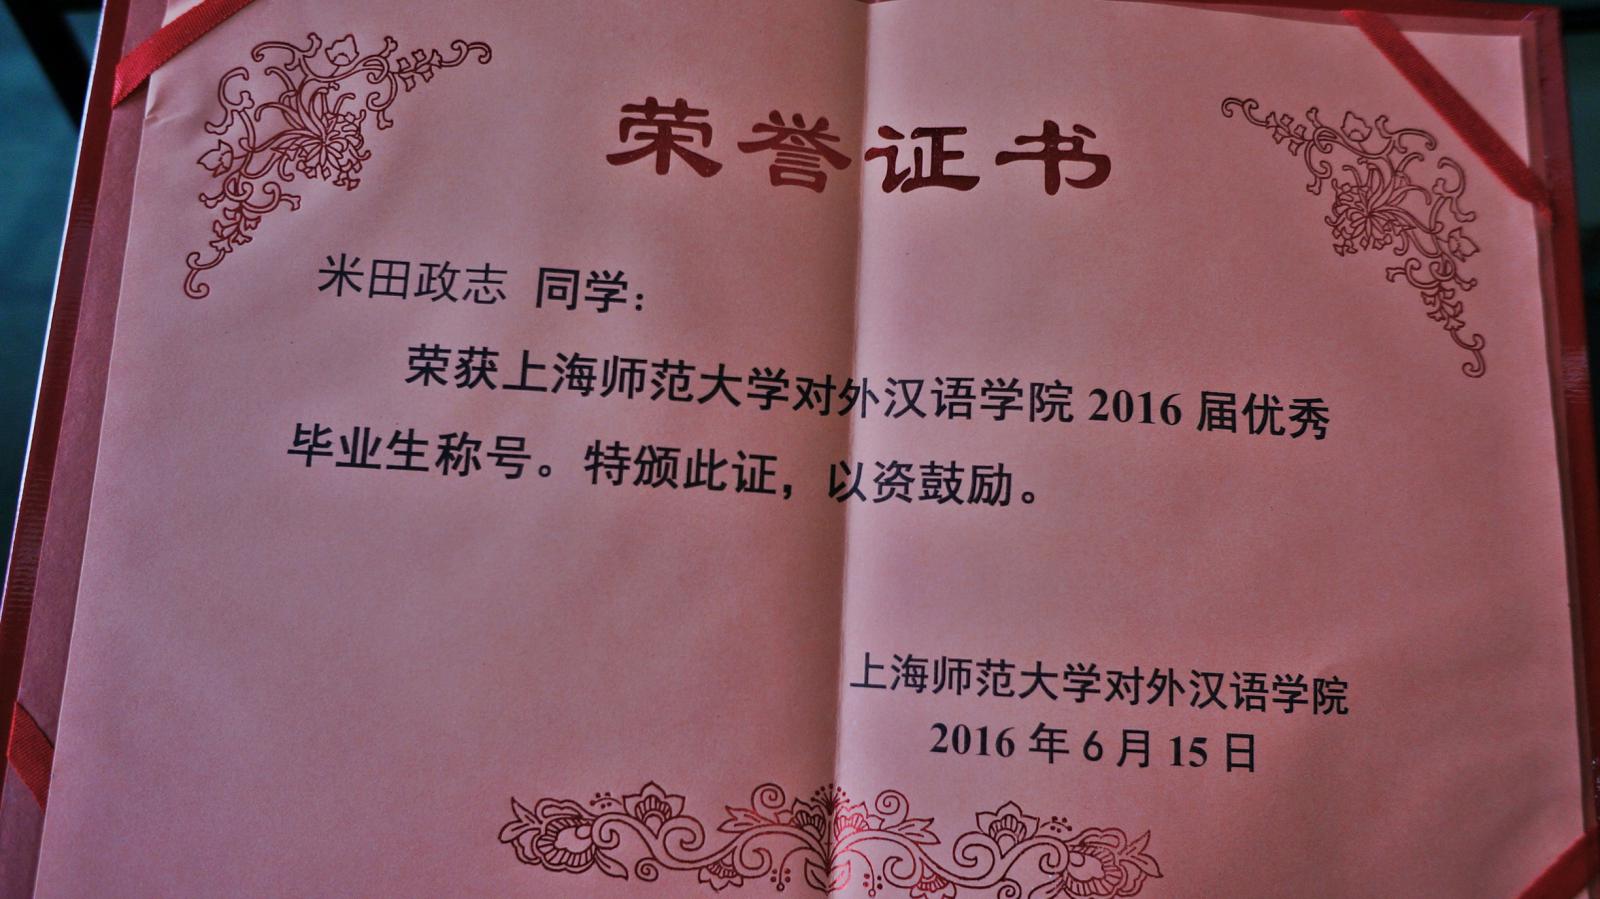 荣誉证书
米田政志 同学：
荣获上海师范大学对外汉语学院 2016 届优秀
毕业生称号。特颁此证，以资鼓励。
上海师范大学对外汉语学院
2016 年 6 月 15 日